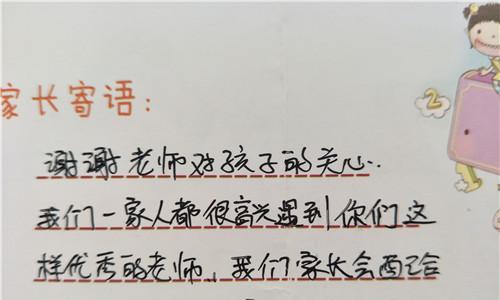 家长寄语：
2
谢谢老师对孩子的关心..
我们一家人都很高兴遇到你们这
样优秀的老师,我们家长会配合